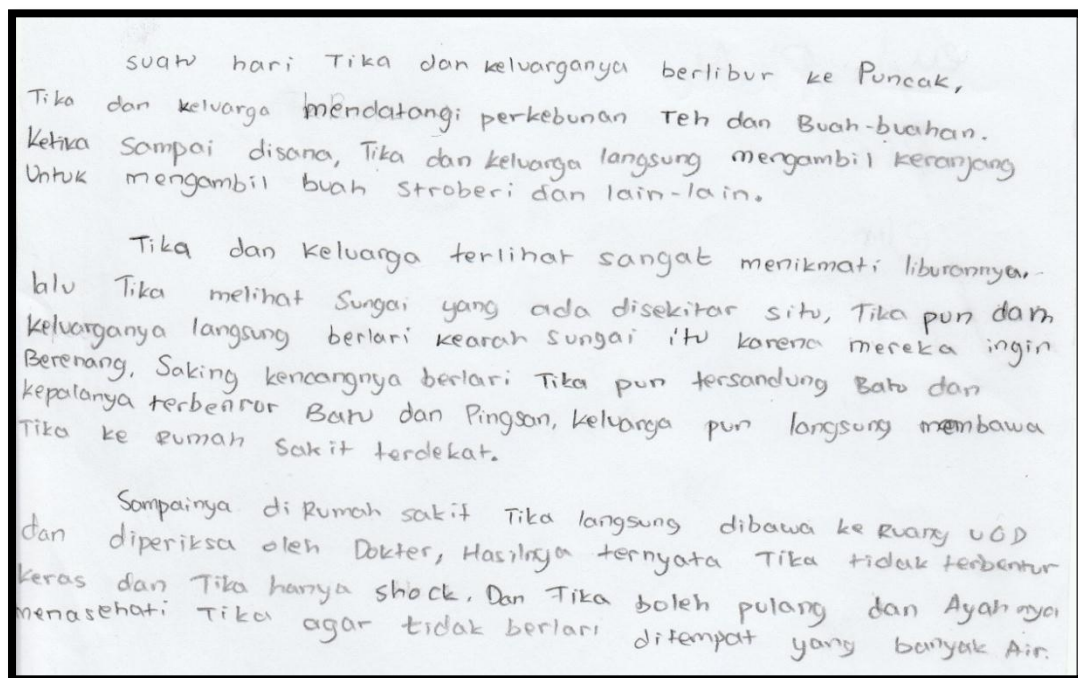 suatu hari Tika dan keluarganya berlibur ke Puncak,
Tika dan keluarga mendatangi perkebunan Teh dan Buah-buahan.
Ketika Sampai disana, Tika dan keluarga langsung mengambil keranjang
Untuk mengambil buah Stroberi dan lain-lain.
Tika dan keluarga terlihat sangat menikmati liburannya.
lalu Tika melihat Sungai yang ada disekitar situ, Tika pun dam
keluarganya langsung berlari kearah sungai itu karena mereka ingin
Berenang, Saking kencangnya berlari Tika pun tersandung Batu dan
kepalanya Batu dan Pingsan, keluarga pun langsung membawa
Tika ke Rumah Sakit terdekat.
Sampainya di Rumah sakit Tika langsung dibawa ke Ruang UGD
dan diperiksa oleh Dokter, Hasilnya ternyata Tika tidak terbentur
keras dan Tika hanya shock. Dan Tika boleh pulang dan Ayahnya
menasehati Tika agar tidak berlari ditempat yang banyak Air.